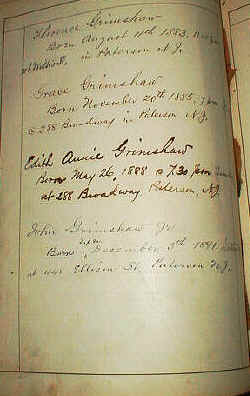 Florence Grimshaw
Born August 11th 1883,
in Paterson N.J.
Grace Grimshaw
Born November 20th 1885,
288 Broadway in Paterson N.J.
Edith Annie Grimshaw
Born May 26, 1888 @ 7.30
at 288 Broadway, Paterson, N.J.
John Grimshaw Jr
Born December 3th 1891
at Ellison St. Paterson N.J.